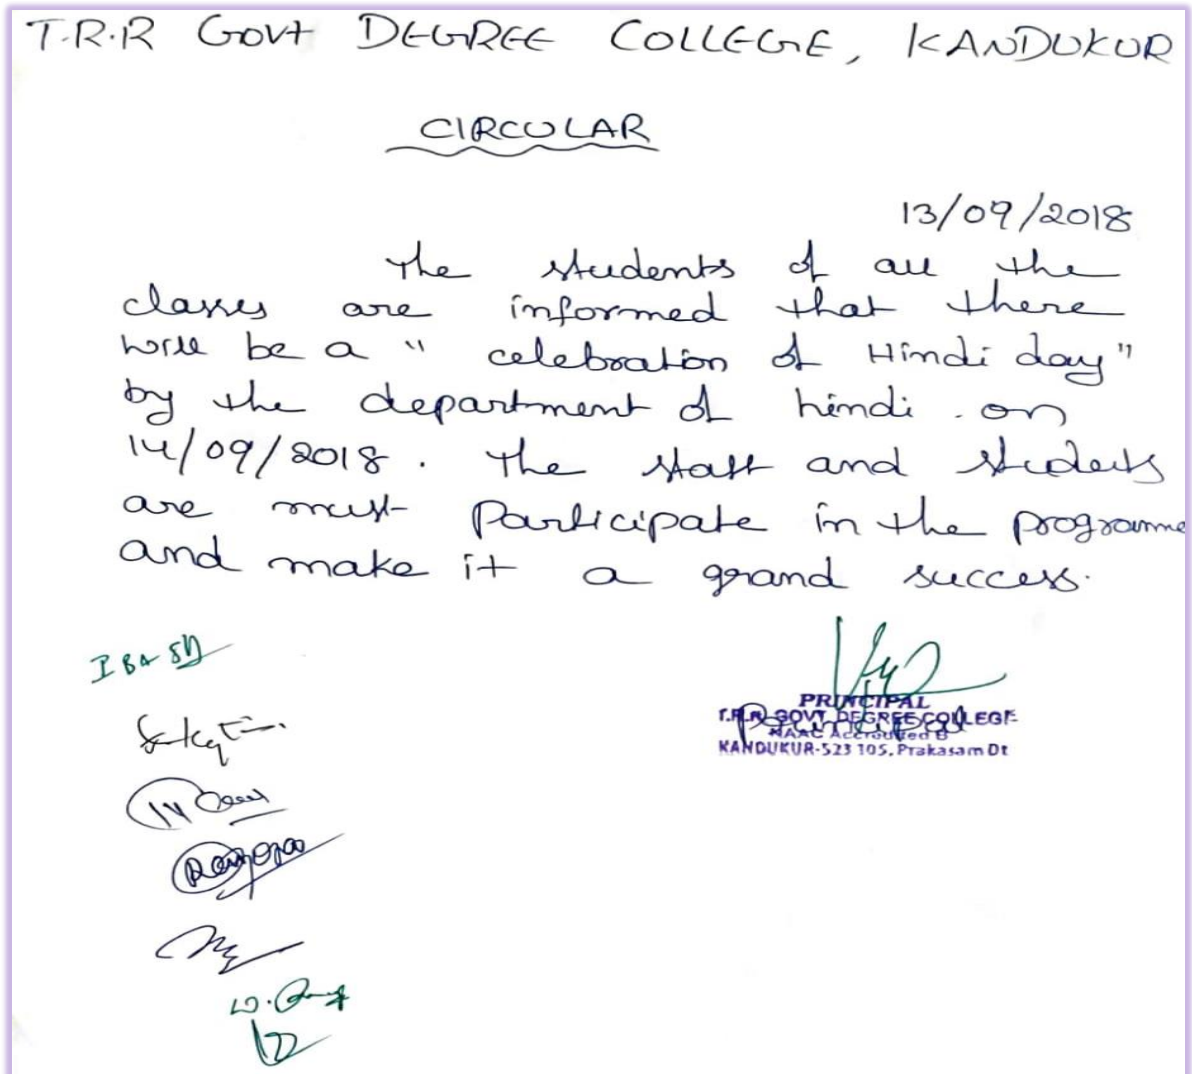 T.R.R GOVT DEGREE COLLEGE, KANDUKUR
CIRCULAR
13/09/2018
The students of all the
classes are informed that there
will be a " celebration of Hindi day"
by the department of hindi . on
14/09/2018 . The staff and students
are must Participate in the programme
and make it a grand success.
PRINCIPAL
T.R.R. GOVT DEGREE COLLEGE
Principal
NAAC Accredited B
KANDUKUR-523 105, Prakasam Dt